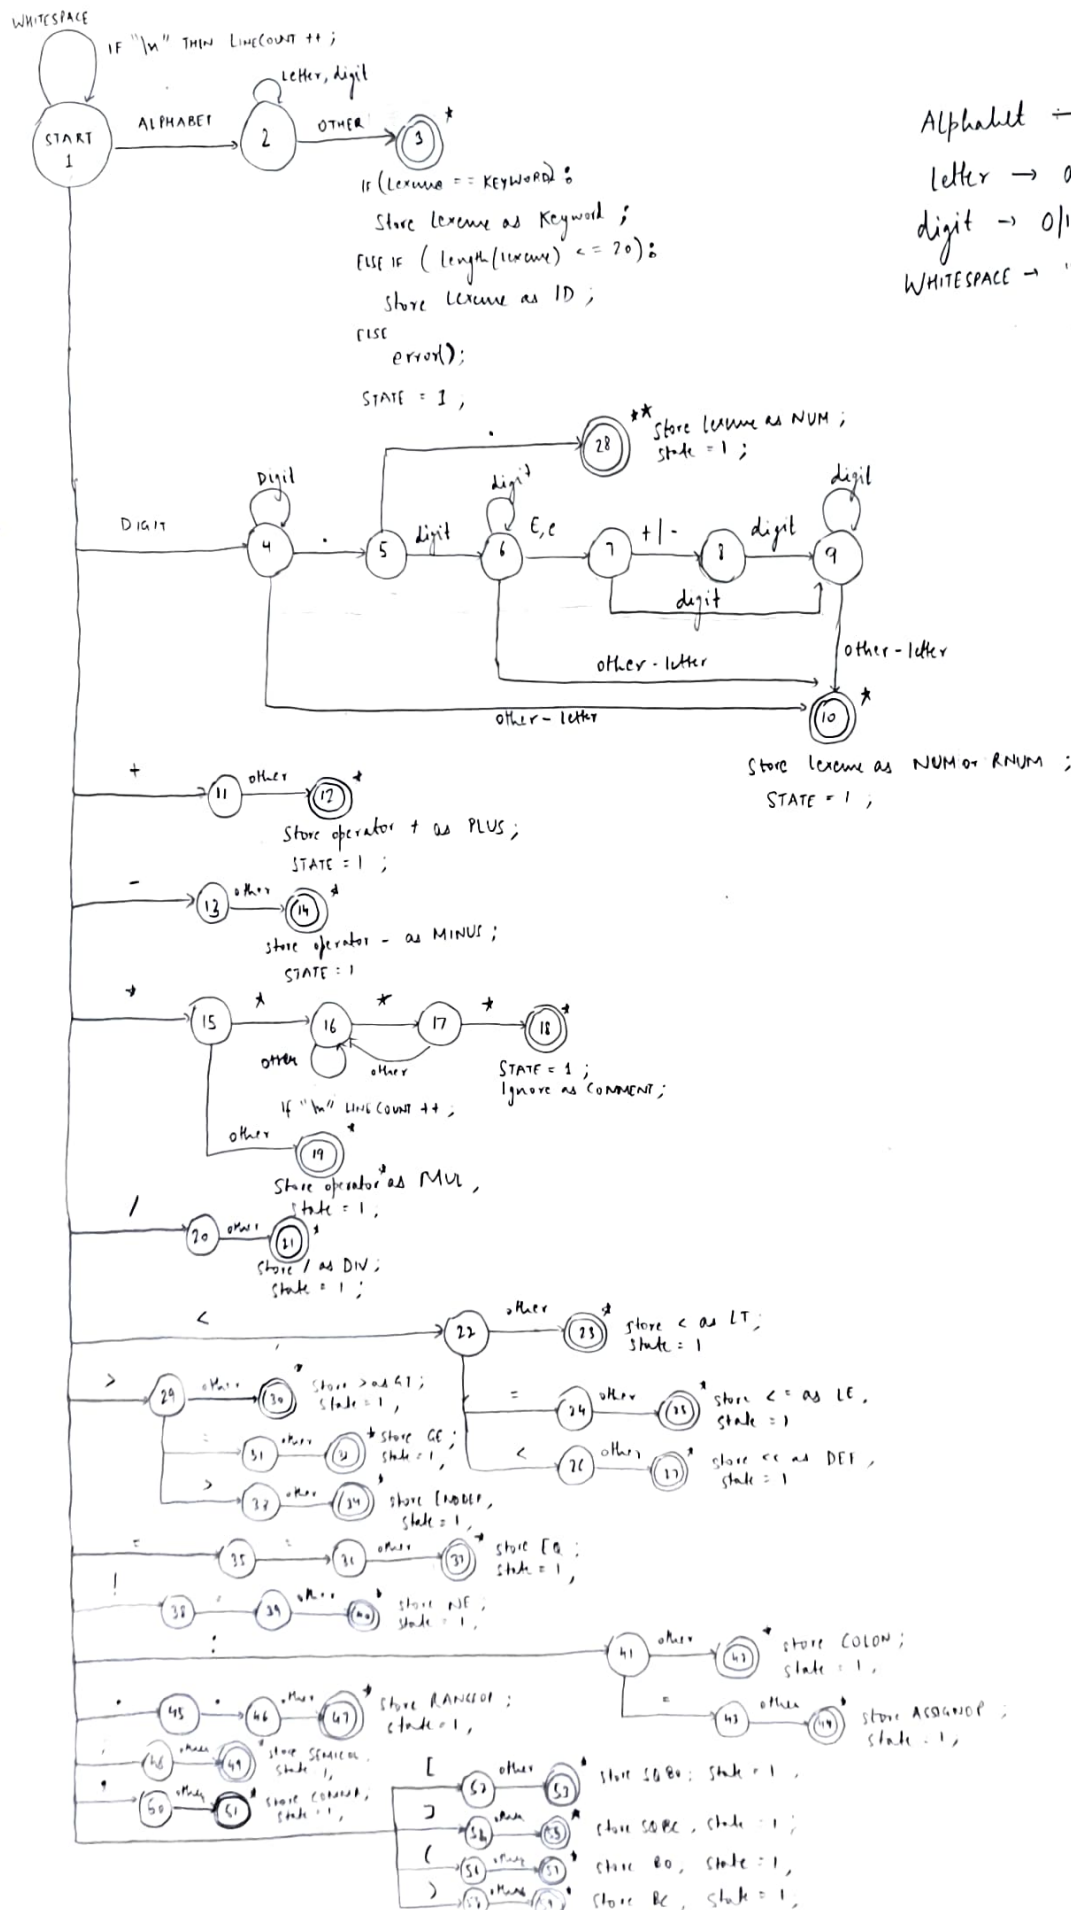 WHITESPACE
IF "\n" THIN LINECOUNT ++ ;
Letter, digit
START
1
ALPHABET
2
OTHER
3
*
IF (Lexeme == KEYWORD) :
Store lexeme as Keyword ;
ELSE IF ( length(lexeme) <= 20) :
Store lexeme as ID ;
ELSE
error();
STATE = 1 ;
Alphabet ÷
letter →
digit → 0/1
WHITESPACE → "
28
** Store lexeme as NUM ;
State = 1 ;
DIGIT
Digit
4
.
5
.
digit
digit
6
E,e
7
+/-
8
digit
digit
9
digit
other-letter
other-letter
other-letter
10
*
Store lexeme as NUM or RNUM ;
STATE = 1 ;
+
11
other
12
*
Store operator + as PLUS ;
STATE = 1 ;
-
13
other
14
*
store operator - as MINUS ;
STATE = 1
*
15
*
16
*
17
*
18
*
other
other
STATE = 1 ;
Ignore as COMMENT ;
If "\n" LINE COUNT ++ ;
other
19
*
Store operator * as MUL ,
State = 1 ,
/
20
other
21
*
Store / as DIV ;
State = 1 ;
<
22
other
23
*
store < as LT ;
State = 1
=
24
other
25
*
store <= as LE ,
state = 1
<
26
other
27
*
store << as DEF ,
state = 1
>
29
other
30
*
Store > as GT ;
State = 1 ,
=
31
other
32
* store GE ;
State = 1 ,
>
33
other
34
*
store
State = 1 ,
=
35
=
36
other
37
*
store EQ ;
State = 1 ,
!
38
=
39
other
40
*
store NE ;
State = 1 ,
:
41
other
42
*
store COLON ;
State = 1 ,
=
43
other
44
*
store ASSIGNOP ;
state = 1 ,
.
45
.
46
other
47
*
store RANGEOP ;
state = 1 ,
;
48
other
49
*
store SEMICOL
State 1,
,
50
other
51
*
store COMMA ;
State = 1 ,
[
52
other
53
*
store SQBO ; State = 1 ,
]
54
other
55
*
store SQBC , State = 1 ;
(
56
other
57
*
store BO, State = 1 ,
)
58
other
59
*
store BC, State = 1 ,